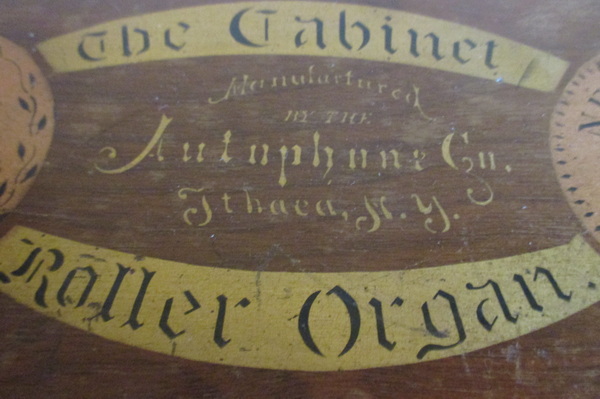 The Cabinet
Manufactured
BY THE
Autophone Co.
Ithaca, N.Y.
Roller Organ.